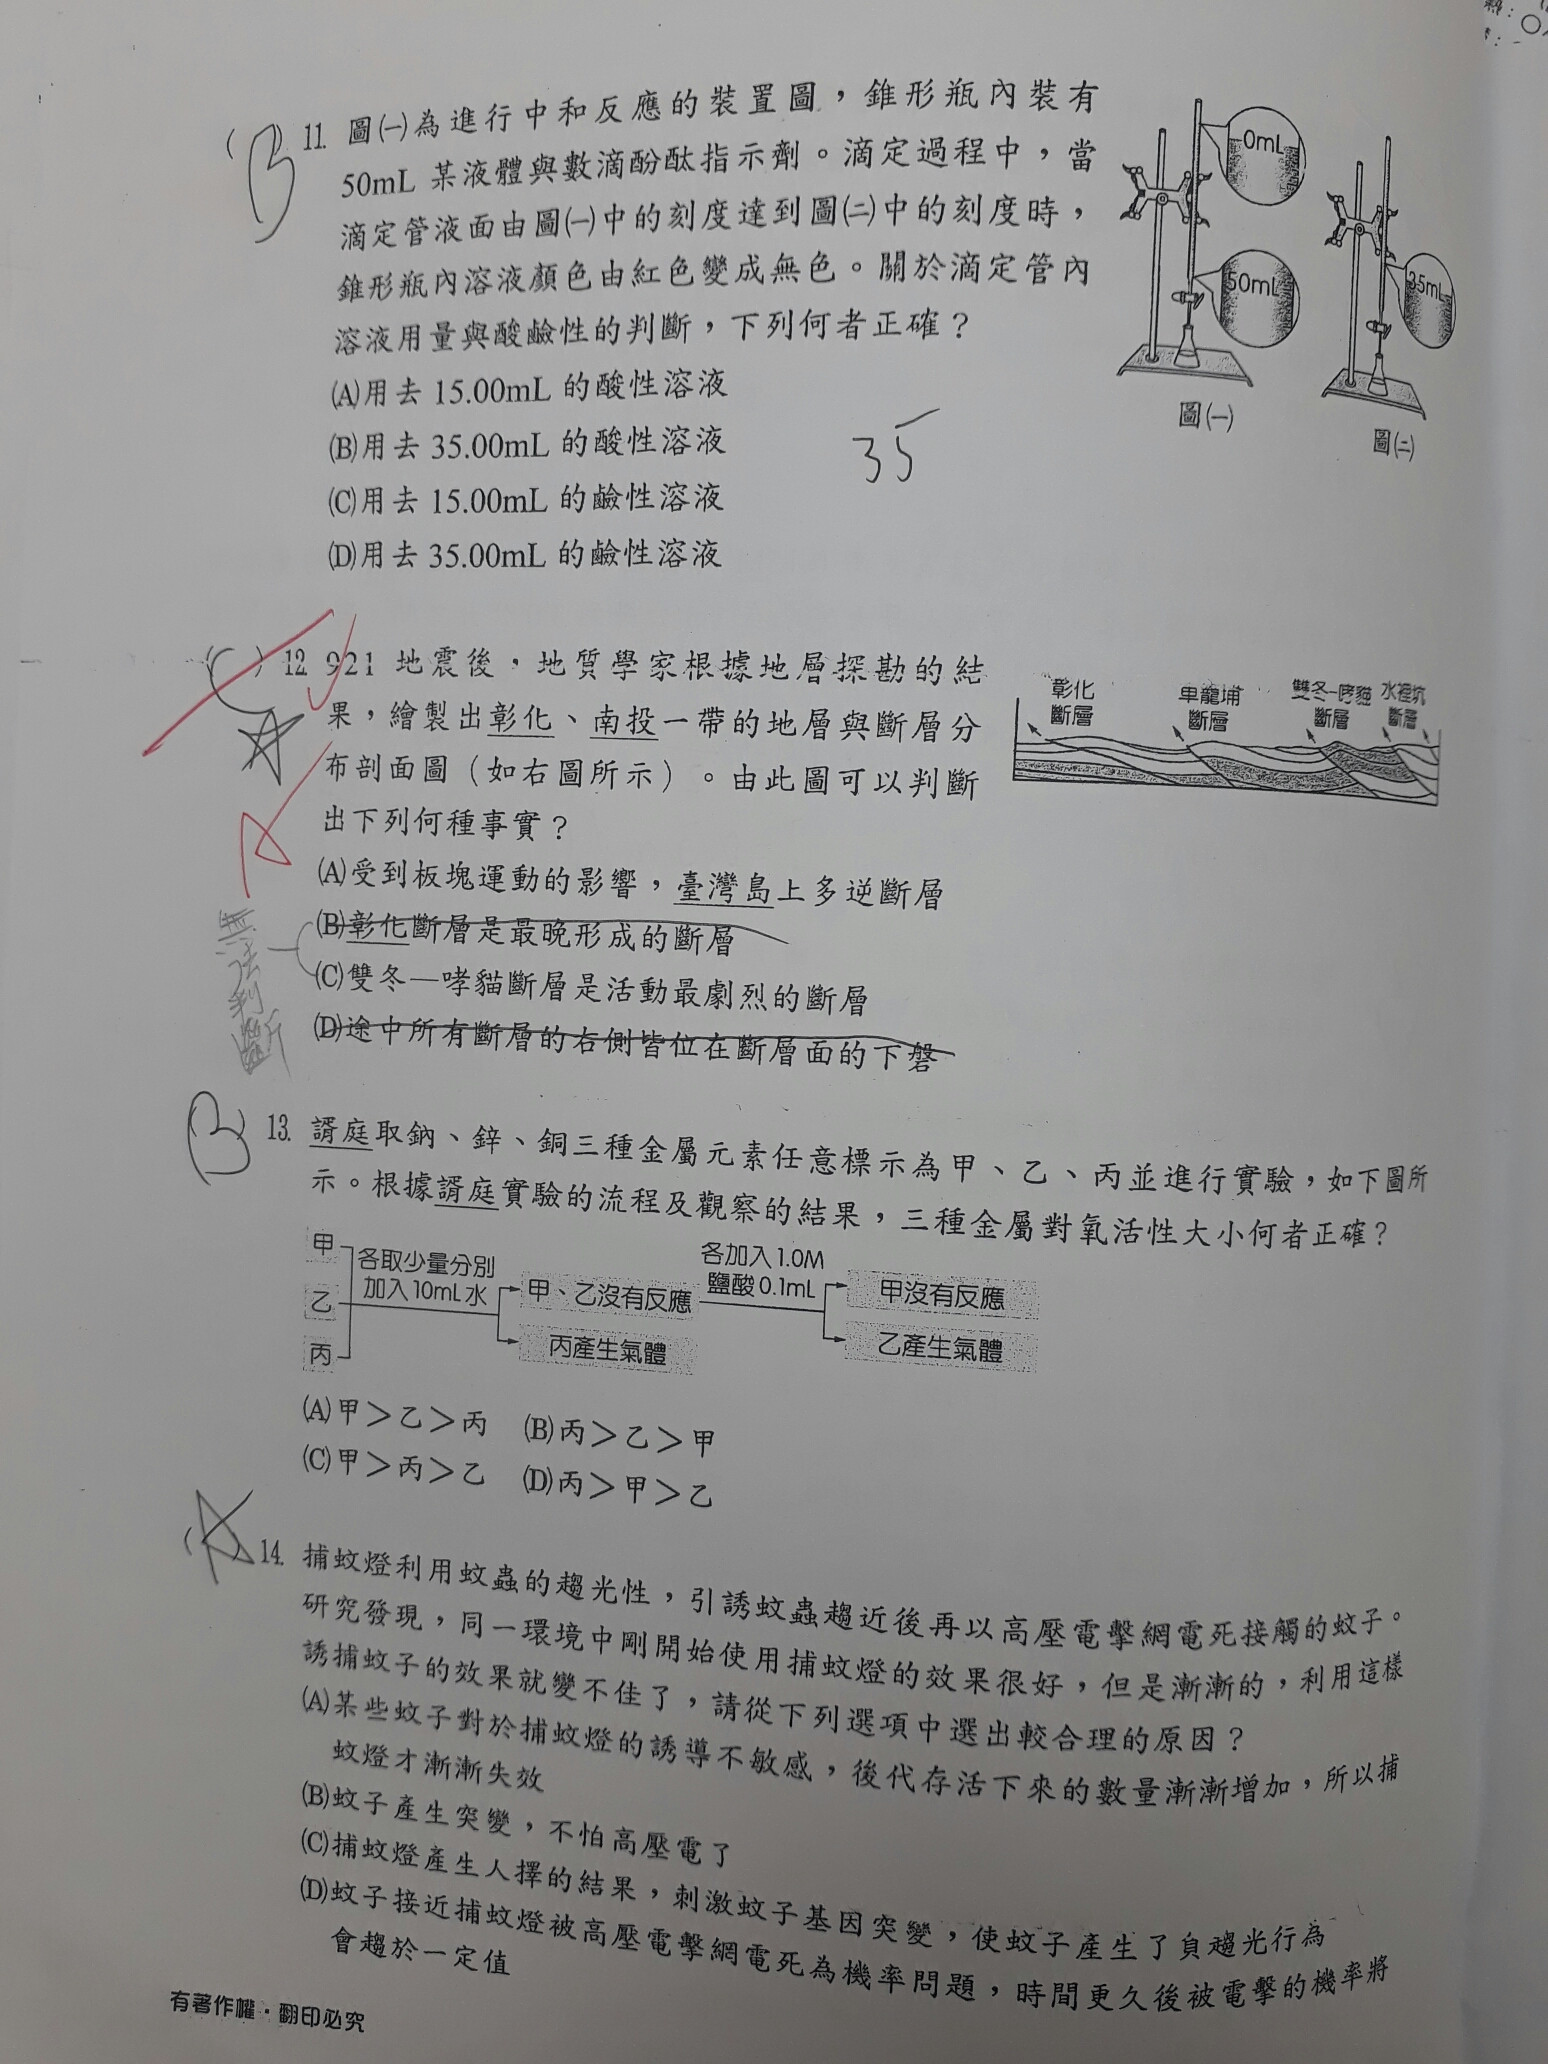 (B) 11. 圖㈠為進行中和反應的裝置圖，錐形瓶內裝有
50mL 某液體與數滴酚酞指示劑。滴定過程中，當
滴定管液面由圖㈠中的刻度達到圖㈡中的刻度時，
錐形瓶內溶液顏色由紅色變成無色。關於滴定管內
溶液用量與酸鹼性的判斷，下列何者正確？
(A)用去 15.00mL 的酸性溶液
(B)用去 35.00mL 的酸性溶液
(C)用去 15.00mL 的鹼性溶液
(D)用去 35.00mL 的鹼性溶液
35
0mL
50mL
35mL
圖㈠
圖㈡
(C) 12. 921 地震後，地質學家根據地層探勘的結
果，繪製出彰化、南投一帶的地層與斷層分
布剖面圖（如右圖所示）。由此圖可以判斷
出下列何種事實？
(A)受到板塊運動的影響，臺灣島上多逆斷層
(B)彰化斷層是最晚形成的斷層
(C)雙冬—哮貓斷層是活動最劇烈的斷層
(D)途中所有斷層的右側皆位在斷層面的下磐
A
無法判斷
彰化
斷層
車籠埔
斷層
雙冬-哮貓
斷層
水裡坑
斷層
(B) 13. 諝庭取鈉、鋅、銅三種金屬元素任意標示為甲、乙、丙並進行實驗，如下圖所
示。根據諝庭實驗的流程及觀察的結果，三種金屬對氧活性大小何者正確？
甲
乙
丙
各取少量分別
加入 10mL 水
甲、乙沒有反應
丙產生氣體
各加入 1.0M
鹽酸 0.1mL
甲沒有反應
乙產生氣體
(A)甲＞乙＞丙 (B)丙＞乙＞甲
(C)甲＞丙＞乙 (D)丙＞甲＞乙
(A) 14. 捕蚊燈利用蚊蟲的趨光性，引誘蚊蟲趨近後再以高壓電擊網電死接觸的蚊子。
研究發現，同一環境中剛開始使用捕蚊燈的效果很好，但是漸漸的，利用這樣
誘捕蚊子的效果就變不佳了，請從下列選項中選出較合理的原因？
(A)某些蚊子對於捕蚊燈的誘導不敏感，後代存活下來的數量漸漸增加，所以捕
蚊燈才漸漸失效
(B)蚊子產生突變，不怕高壓電了
(C)捕蚊燈產生人擇的結果，刺激蚊子基因突變，使蚊子產生了負趨光行為
(D)蚊子接近捕蚊燈被高壓電擊網電死為機率問題，時間更久後被電擊的機率將
會趨於一定值
有著作權・翻印必究